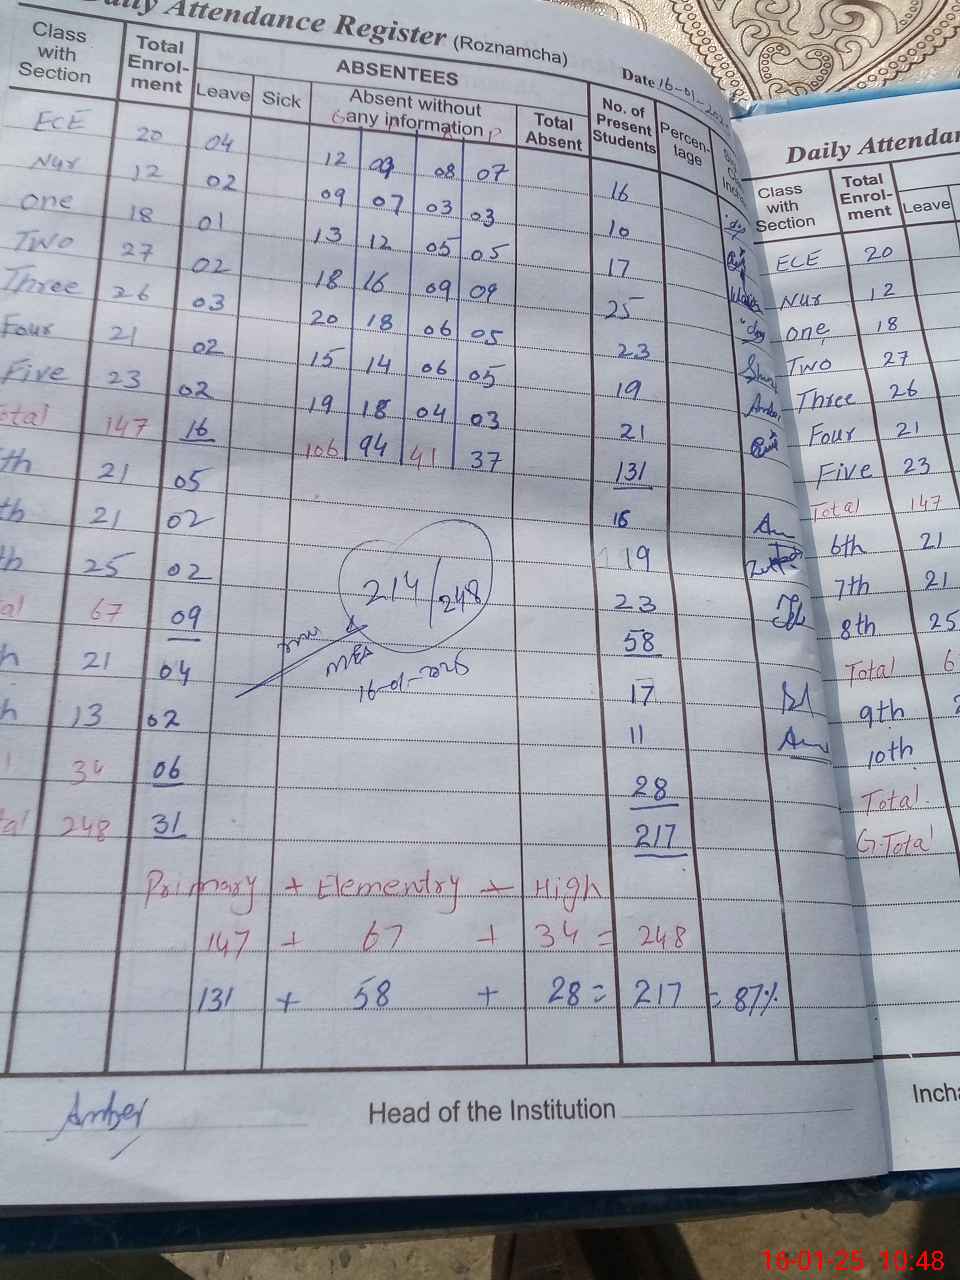 Daily Attendance Register (Roznamcha)
Date 16-01-202
Class with Section
Total Enrol-ment
ABSENTEES
Leave
Sick
Absent without any information
G P
Total Absent
No. of Present Students
Percen-tage
ECE 20 04 12 09 08 07 16
Nur 12 02 09 07 03 03 10
One 18 01 13 12 05 05 17
Two 27 02 18 16 09 09 25
Three 26 03 20 18 06 05 23
Four 21 02 15 14 06 05 19
Five 23 02 19 18 04 03 21
otal 147 16 106 94 41 37 131
th 21 05 16
th 21 02 19
th 25 02 23
al 67 09 58
h 21 04 17
h 13 02 11
34 06 28
al 248 31 217
214/248
MEA
16-01-2025
Primary + Elementry + High
147 + 67 + 34 = 248
131 + 58 + 28 = 217 = 87%
Amber
Head of the Institution
Daily Attendan
Class with Section
Total Enrol-ment
Leave
ECE 20
Nur 12
One 18
Two 27
Three 26
Four 21
Five 23
Total 147
6th 21
7th 21
8th 25
Total 6
9th
10th
Total
G.Total
Incha
16-01-25 10:48